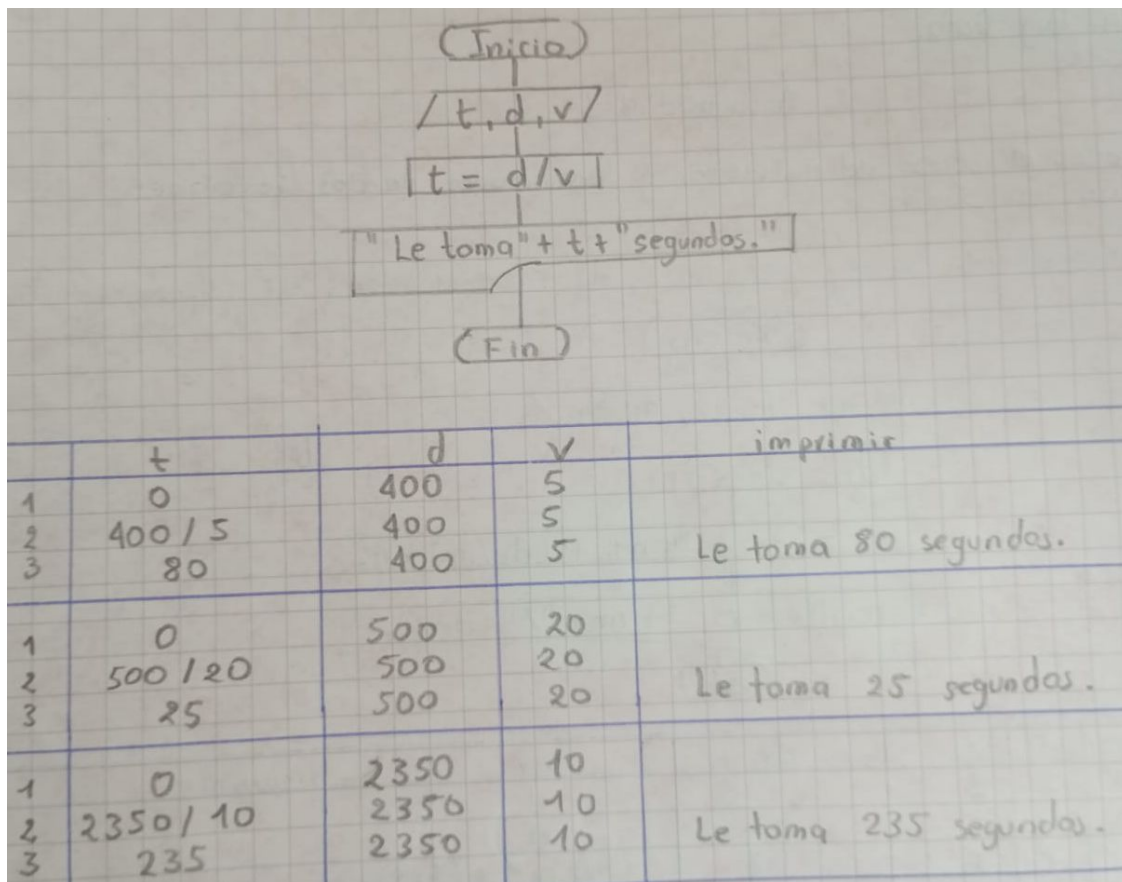 Inicio
t, d, v
t = d/v
"Le toma" + t + "segundos."
Fin
t d v imprimir
1 0 400 5
2 400/5 400 5
3 80 400 5 Le toma 80 segundos.
1 0 500 20
2 500/20 500 20
3 25 500 20 Le toma 25 segundos.
1 0 2350 10
2 2350/10 2350 10
3 235 2350 10 Le toma 235 segundos.